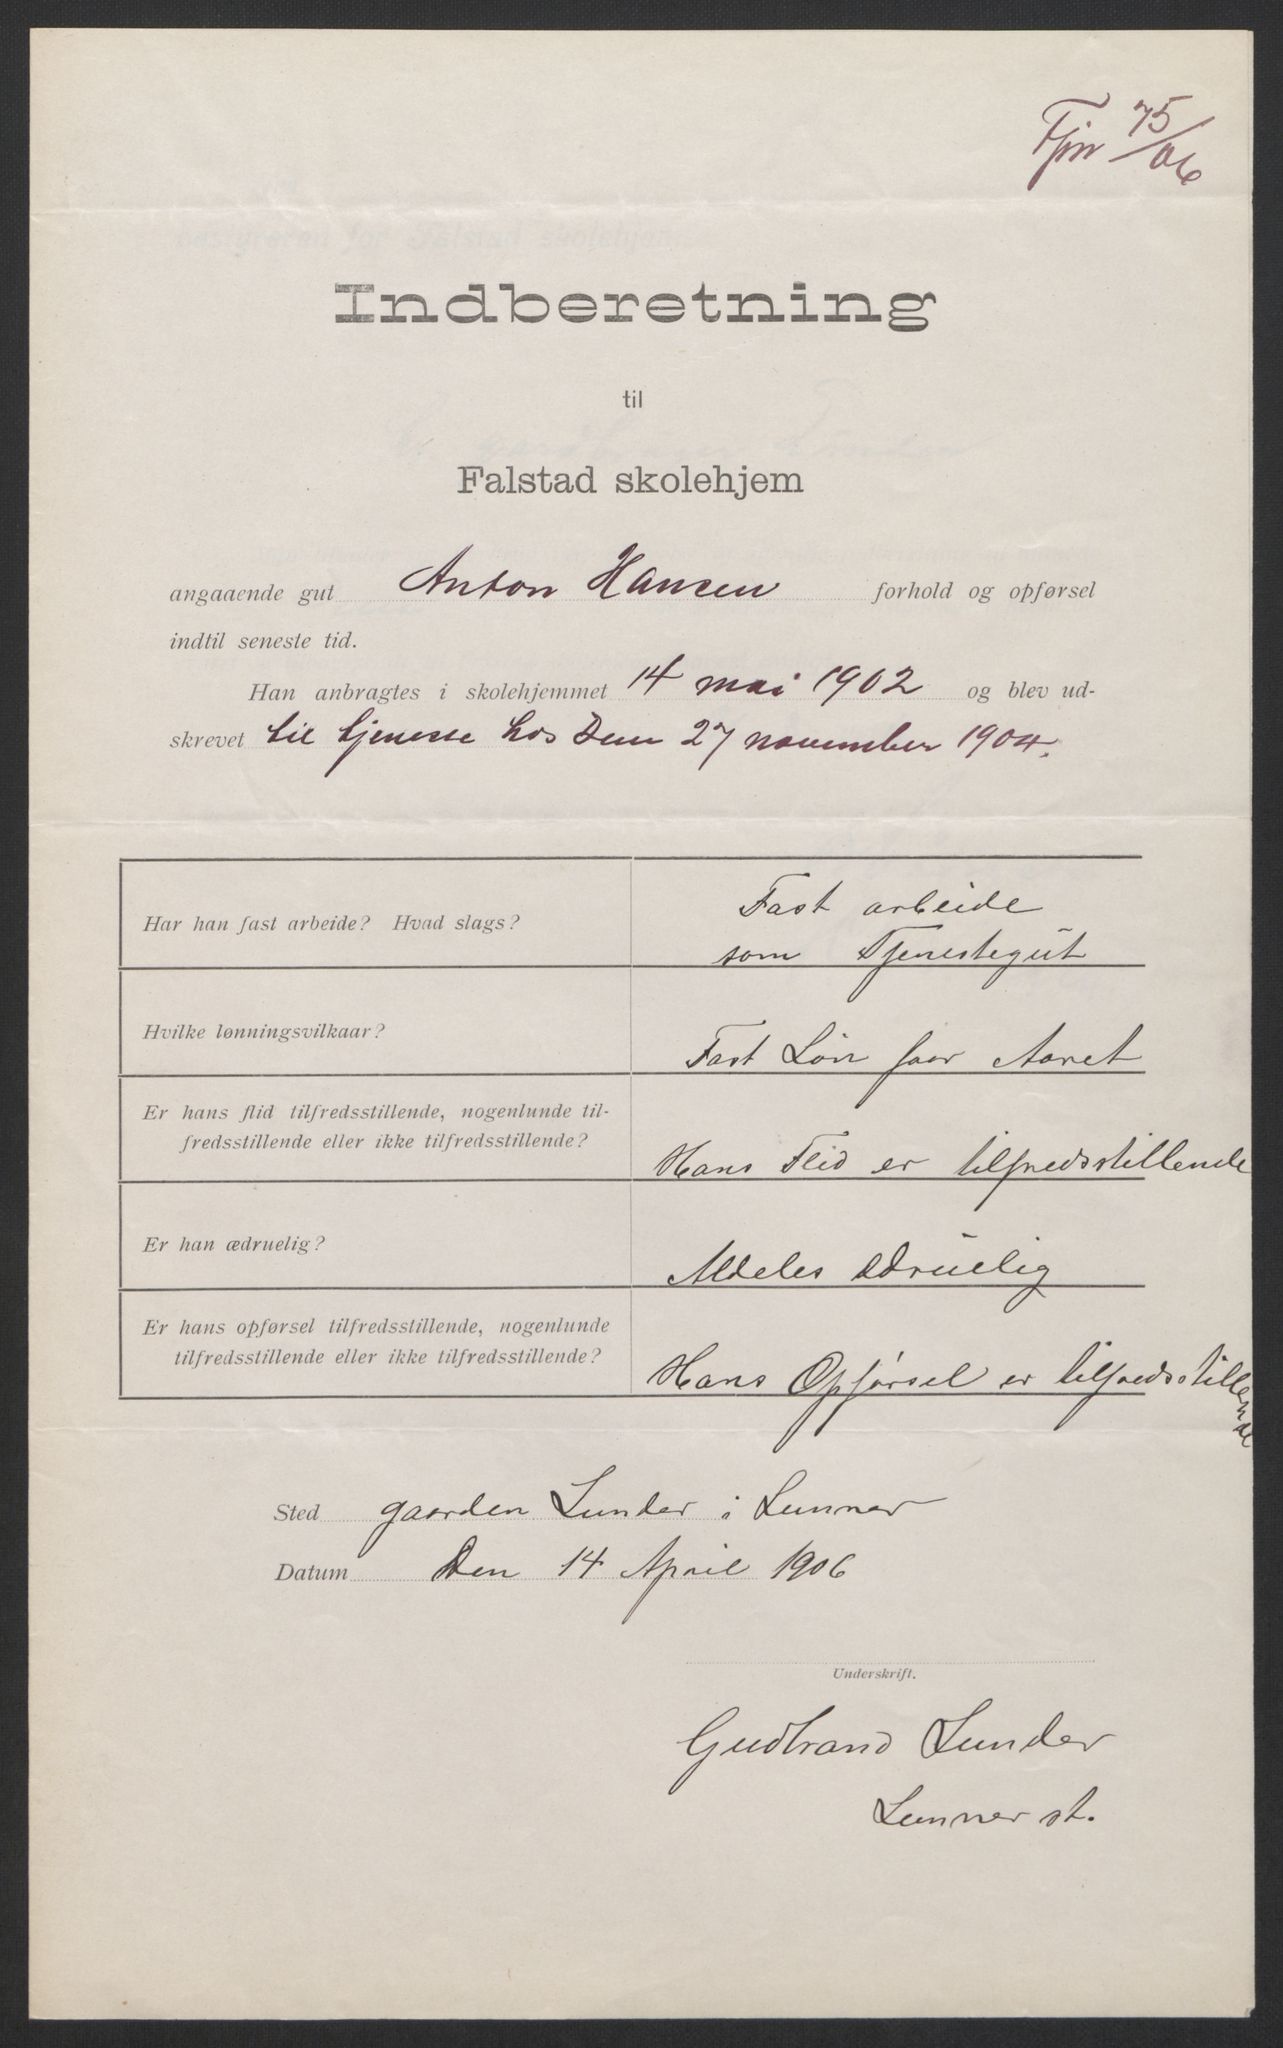 Fjn 75/06
Indberetning
til
Falstad skolehjem
angaaende gut Anton Hansen forhold og opførsel
indtil seneste tid.
Han anbragtes i skolehjemmet 14 mai 1902 og blev ud-
skrevet til tjeneste hos Dem 27 november 1904.
Har han fast arbeide? Hvad slags?
Fast arbeide
som Tjenestegut
Hvilke lønningsvilkaar?
Fast Løn faar Aaret
Er hans flid tilfredsstillende, nogenlunde til-
fredsstillende eller ikke tilfredsstillende?
Hans Flid er tilfredsstillende
Er han ædruelig?
Aldeles ædruelig
Er hans opførsel tilfredsstillende, nogenlunde
tilfredsstillende eller ikke tilfredsstillende?
Hans Opførsel er tilfredsstillende
Sted gaarden Lunder i Lunner
Datum Den 14 April 1906
Underskrift.
Gudbrand Lunder
Lunner st.